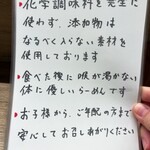 ・化学調味料を完全に
使わず、添加物は
なるべく入らない素材を
使用しております
・食べた後に喉が渇かない
体に優しいらーめんです
・お子様から、ご年配の方まで
安心してお召しあがりください